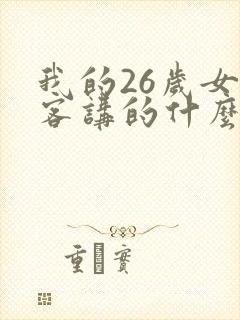 我的26歲女
客講的什麼
重 實